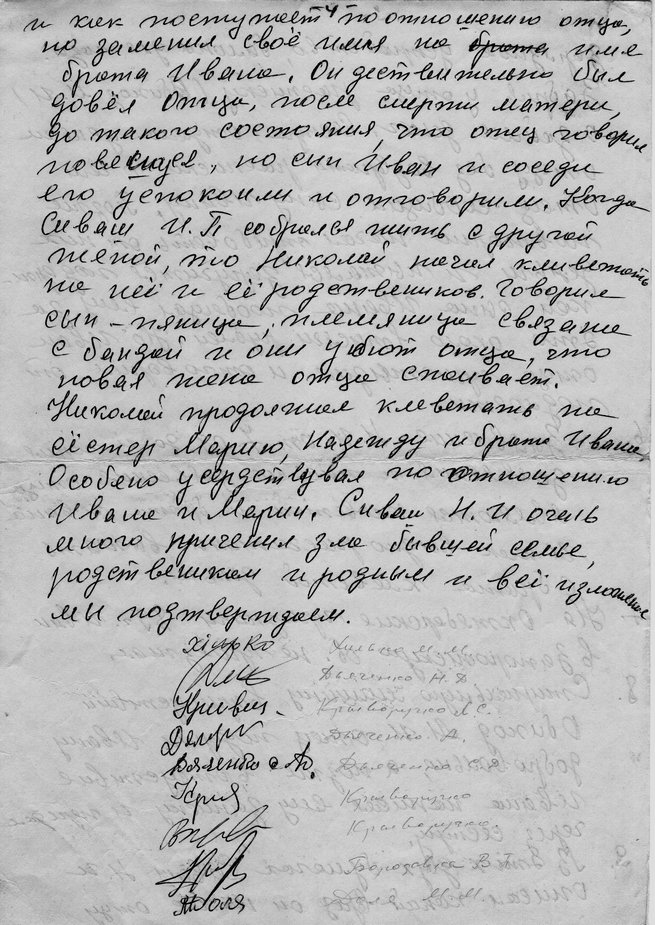 и как поступает по отношению отца,
но заменил своё имя на брата имя
брата Ивана. Он дествительно был
довёл Отца, после смерти матери,
до такого состояния, что отец говорил
повешуся, но сын Иван и соседи
его успокоили и отговорили. Когда
Сиваш И.П собрался жить с другой
женой, то Николай начал клеветать
на неї и её родствеников. Говорил
сын - пяница, племяница связана
с бандай и они убют отца, что
новая жена отца спаивает.
Николай продолжал клеветать на
сёстер Марию, Надежду и брата Ивана.
Особено усердствувал по отношению
Ивана и Марии. Сиваш Н.И очень
много причинил зла бывшей семье,
родственикам и родным и всё изложеное
мы подтверждаем.
Хилько Хилько М.М.
Дьяченко Н.Д
Кривец- Криворучко Л.С.
Дьяченко А.
Криворучко
Криворучко
Бородавка В
Жоля